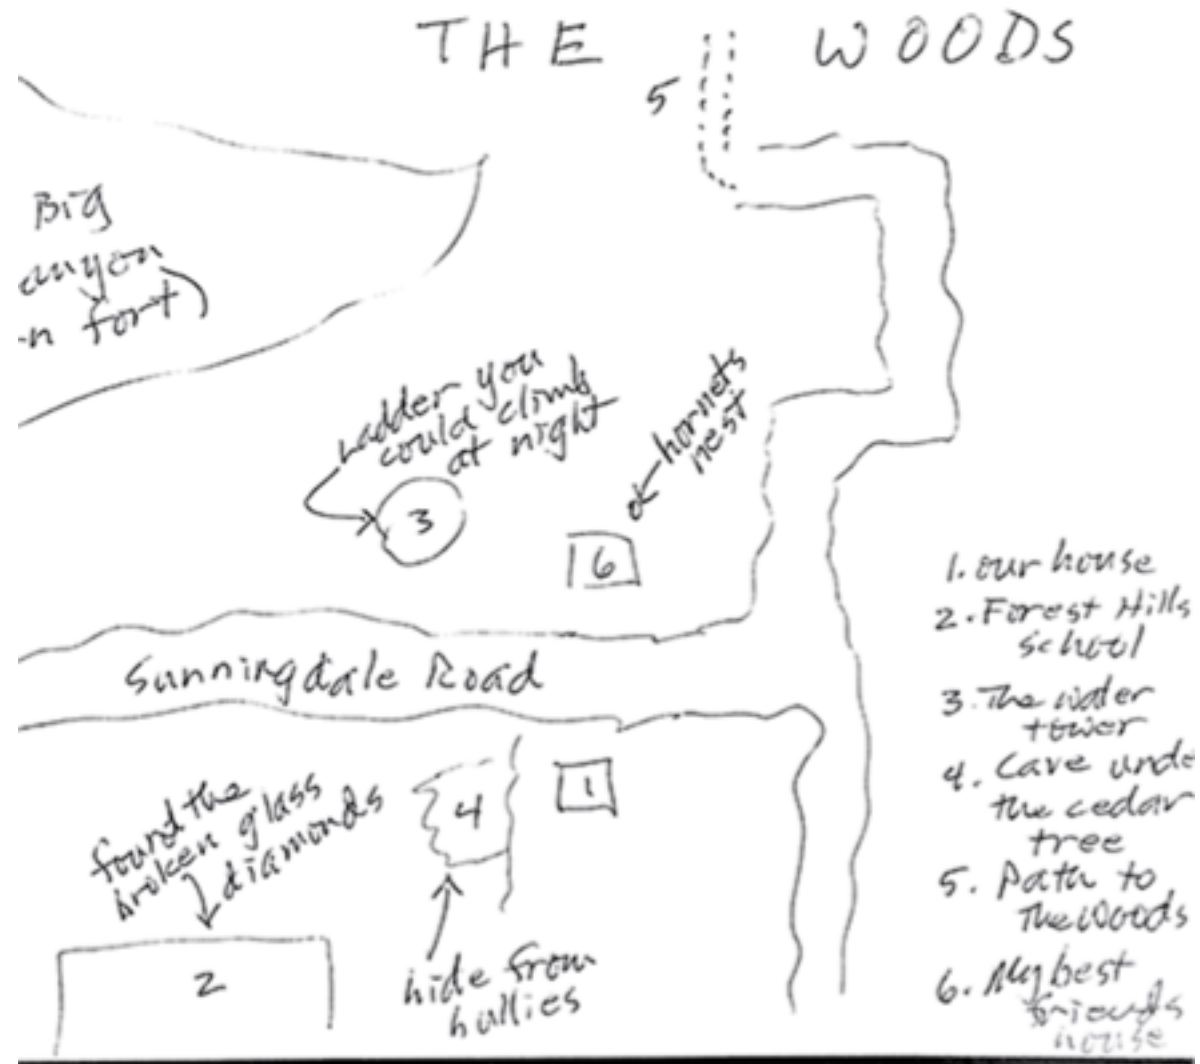 THE WOODS
5
Big
anyon
n fort)
Ladder you
could climb
at night
hornets
nest
3
6
Sunningdale Road
1
4
found the
broken glass
diamonds
hide from
bullies
2
1. our house
2. Forest Hills
school
3. The water
tower
4. Cave unde
the cedar
tree
5. Path to
The Woods
6. My best
friends
house